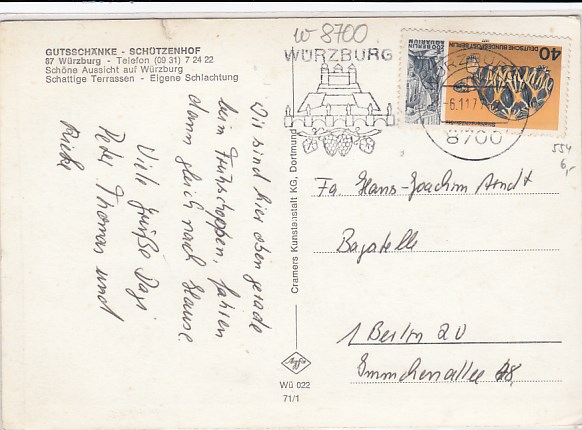 W 8700
GUTSSCHÄNKE - SCHÜTZENHOF
87 Würzburg - Telefon (09 31) 7 24 22
Schöne Aussicht auf Würzburg
Schattige Terrassen - Eigene Schlachtung
WÜRZBURG
ZOO BERLIN
AQUARIUM
DEUTSCHE BUNDESPOST BERLIN
40
-6.11.77
8700
554
6,-
Wir sind hier oben gerade
beim Frühschoppen, fahren
dann gleich nach Hause
Viele Grüße
Peter Thomas und
Cramers Kunstanstalt KG, Dortmund
Fa. Hans-Joachim Arndt
Bagatelle
1 Berlin 20
Immchenallee
Wü 022
71/1